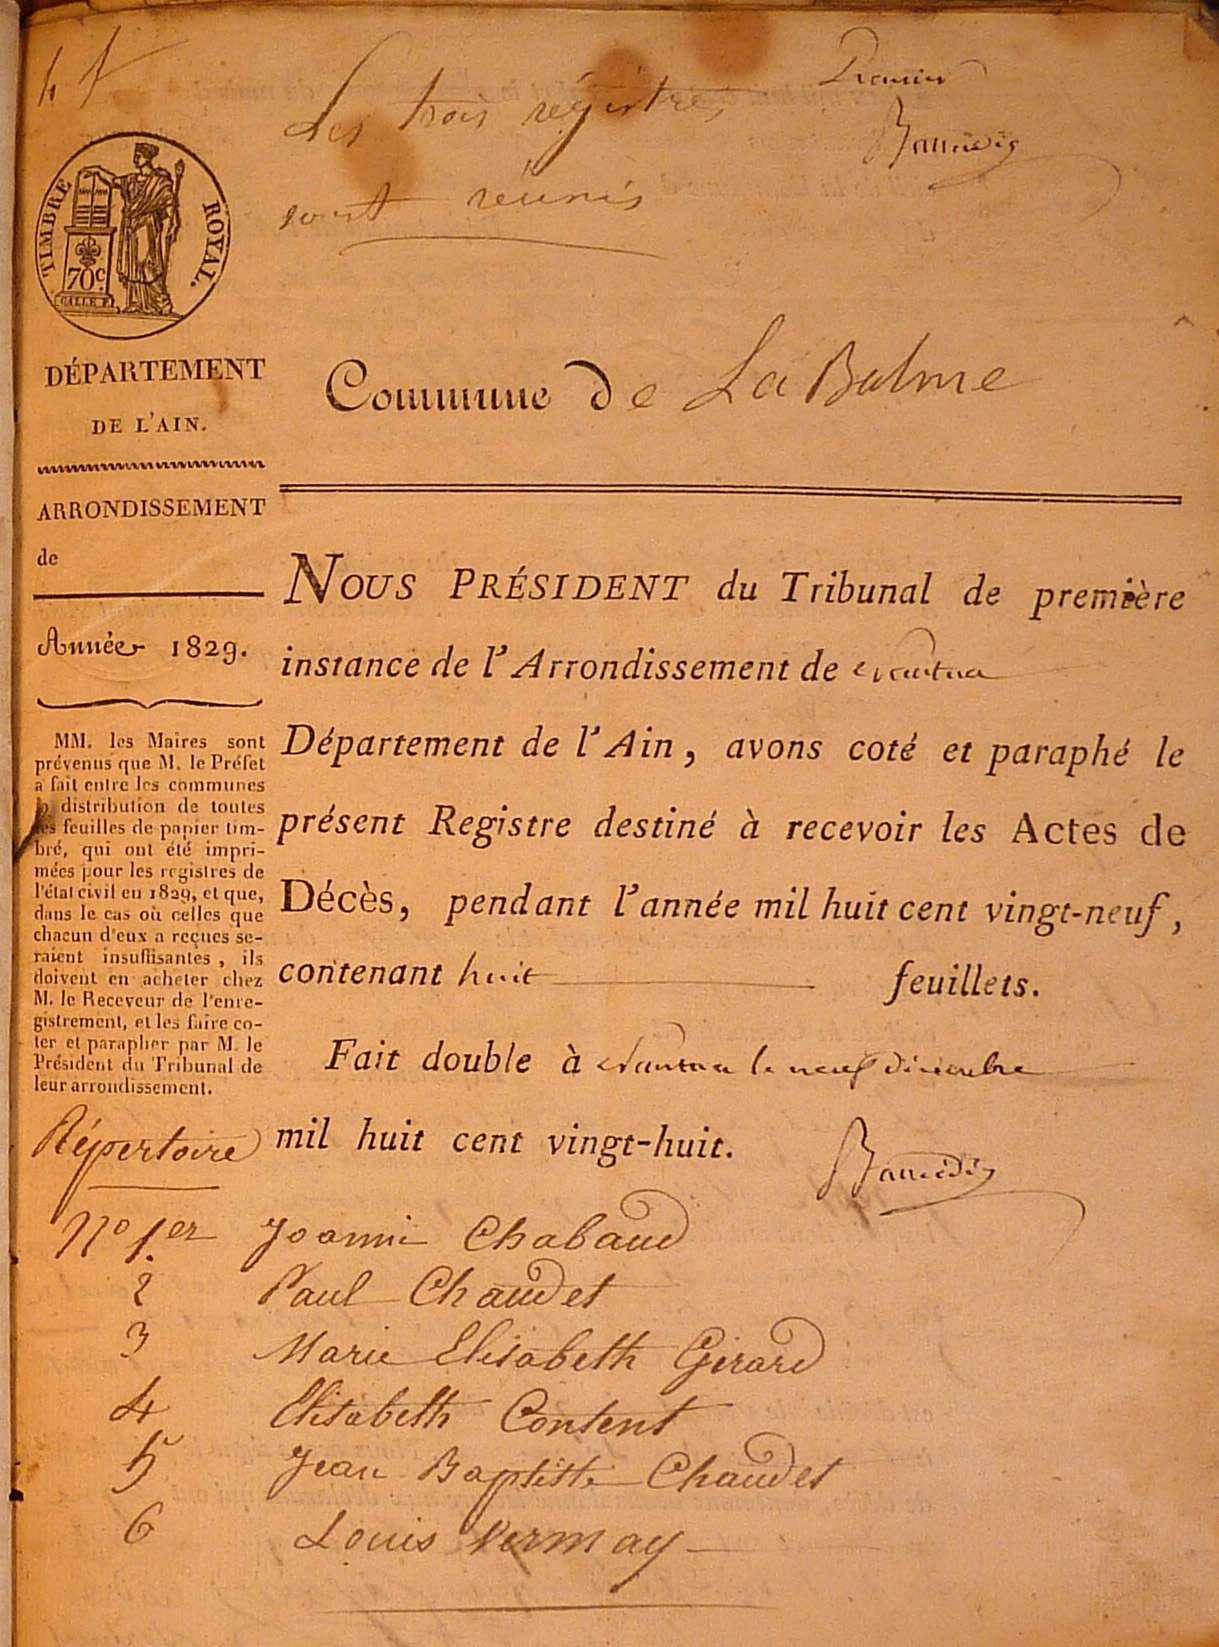 Les trois régistres
sont réunis
Premier
TIMBRE ROYAL.
70c.
DÉPARTEMENT
DE L'AIN.
ARRONDISSEMENT
de
Année 1829.
MM. les Maires sont
prévenus que M. le Préfet
a fait entre les communes
la distribution de toutes
les feuilles de papier tim-
bré, qui ont été impri-
mées pour les registres de
l'état civil en 1829, et que,
dans le cas où celles que
chacun d'eux a reçues se-
raient insuffisantes, ils
doivent en acheter chez
M. le Receveur de l'enre-
gistrement, et les faire co-
ter et parapher par M. le
Président du Tribunal de
leur arrondissement.
Commune de La Balme
NOUS PRÉSIDENT du Tribunal de première
instance de l'Arrondissement de Nantua
Département de l'Ain, avons coté et paraphé le
présent Registre destiné à recevoir les Actes de
Décès, pendant l'année mil huit cent vingt-neuf,
contenant huit feuillets.
Fait double à Nantua le neuf décembre
mil huit cent vingt-huit.
Répertoire
No 1.er Joanni Chabaud
2 Paul Chaudet
3 Marie Elisabeth Girard
4 Elisabeth Content
5 Jean Baptiste Chaudet
6 Louis Vermay